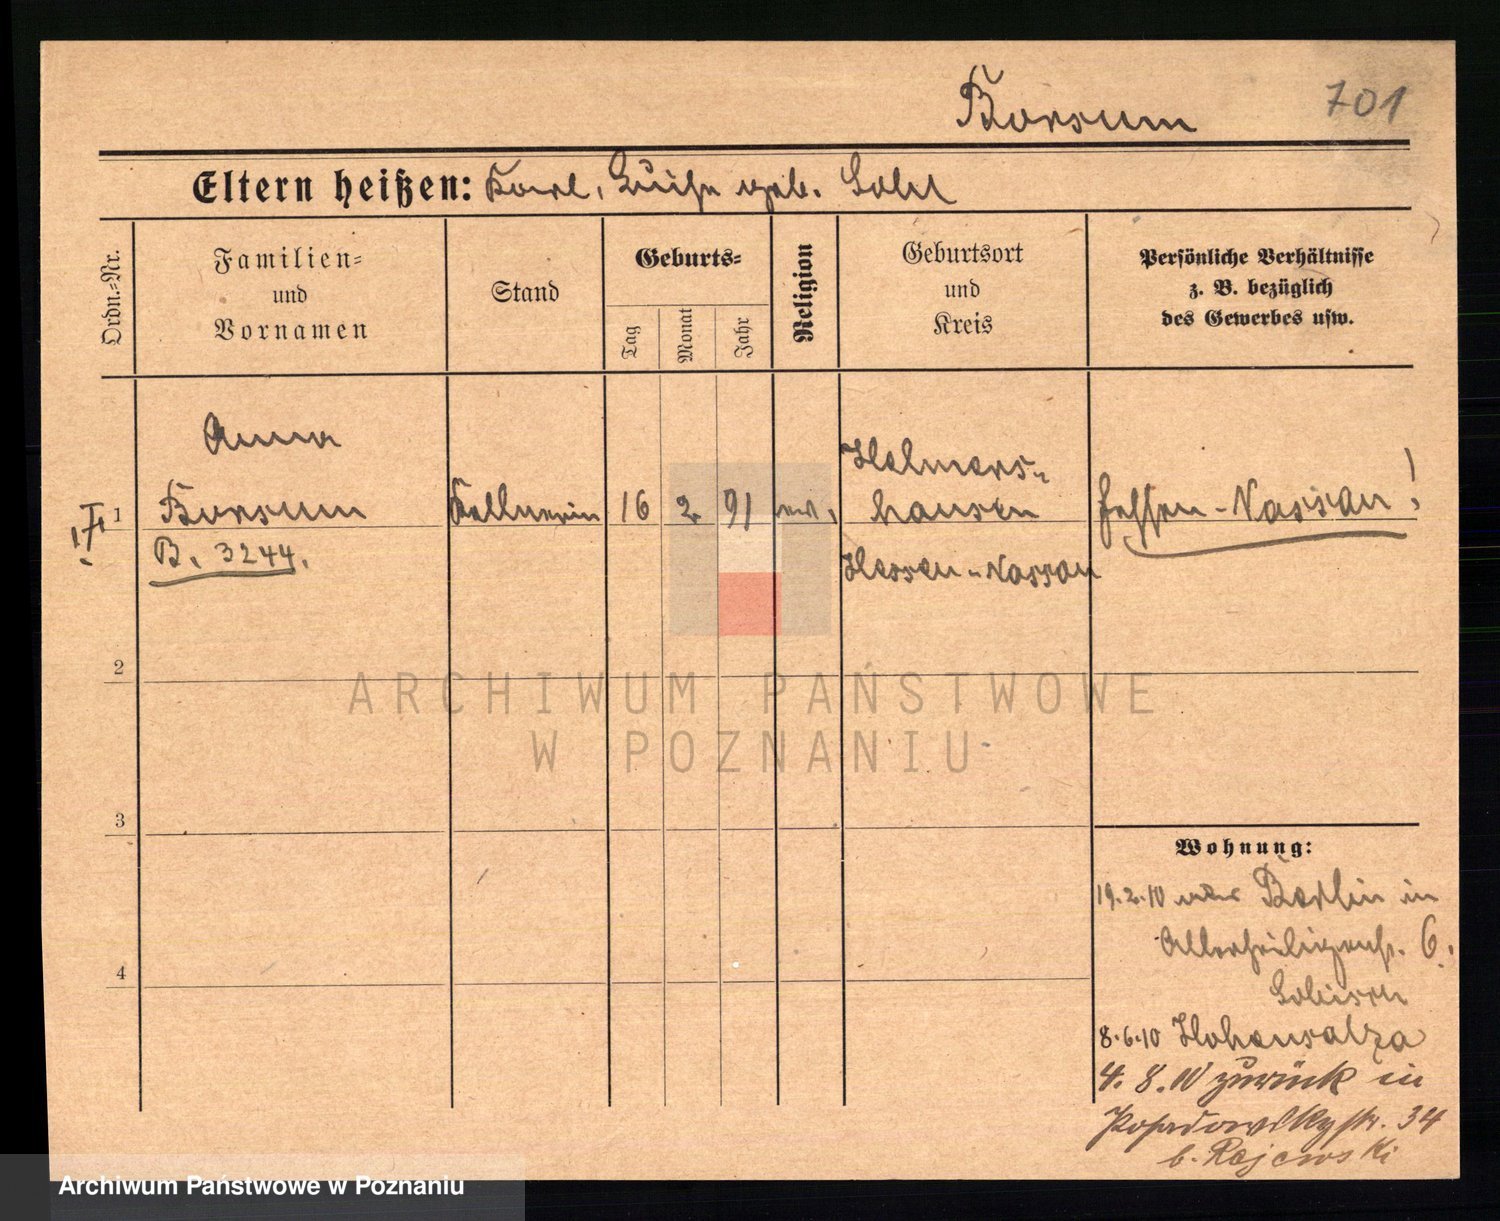 Borsum
701
Eltern heißen: Karl, Luise geb.
Ordn.-Nr.
Familien-
und
Vornamen
Stand
Geburts-
Tag
Monat
Jahr
Religion
Geburtsort
und
Kreis
Persönliche Verhältnisse
z. B. bezüglich
des Gewerbes usw.
Anna
1 Borsum Kellnerin 16 2 91
B. 3244.
Helmars-
hausen
Hessen-Nassau
Hessen-Nassau!
2
3
4
ARCHIWUM PAŃSTWOWE
W POZNANIU
Wohnung:
19.2.10 Berlin in
Allerheiligenstr. 6.
8.6.10 Hohensalza
4.8.10 zurück in
Posadowskystr. 34
b. Rajewski
Archiwum Państwowe w Poznaniu